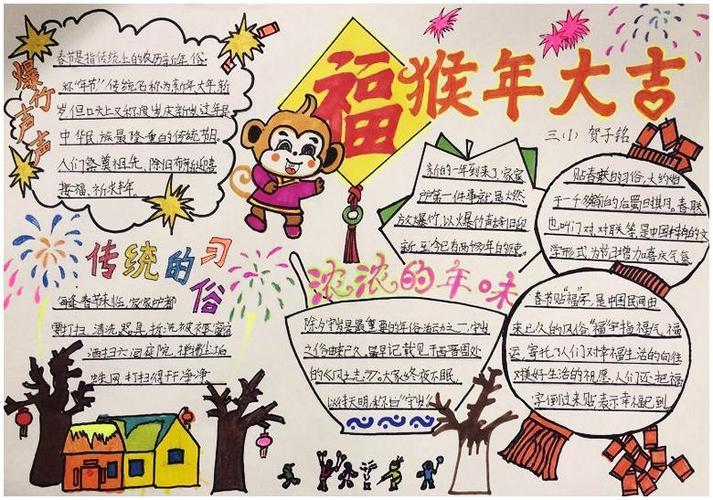 福
猴年大吉
三（1） 贺子铭
爆竹声声
春节是指传统上的农历新年,俗
称"年节"传统名称为新年大年新
岁,但口头上又称度岁庆新岁过年是
中华民族最隆重的传统节日。
人们祭奠祖先、除旧布新迎禧
接福、祈求丰年。
新的一年到来了家家
所第一件事就是燃
放爆竹,以爆竹声
贴春联的习俗,大约始
于一千多年前的后蜀
也叫门对,对联等,是中国特有的文
学形式为节日增加喜庆气氛
传统的习俗
每逢春节来临,家家户户都
要打扫
清洗器具,拆洗被褥窗帘
洒扫六闾庭院,掸拂尘垢
蛛网,打扫得干干净净
浓浓的年味
除夕守岁是最重要的年俗活动之一,守岁
之俗由来已久。最早记载见于西晋周处
的《风土志》:大家终夜不眠,
以待天明,称曰"守岁"
春节贴"福"字,是中国民间由
来已久的风俗"福"字指福气、福
运,寄托了人们对幸福生活的向往
对美好生活的祝愿,人们还把福
字倒过来贴表示幸福已到